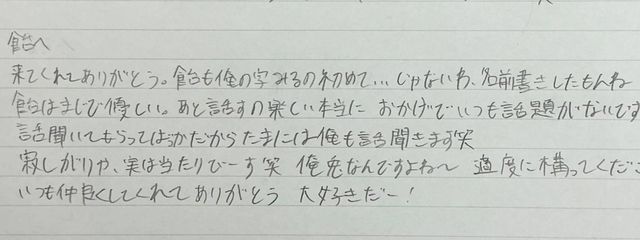 飴へ
来てくれてありがとう。飴も俺の字みるの初めて...じゃないわ、名前書きしたもんね
飴はまじで優しい。あと話すの楽しい本当に おかげでいつも話題がないです
話聞いてもらってばっかだからたまには俺も話聞きます笑
寂しがりや、実は当たりでーす笑 俺兎なんですよね〜 適度に構ってくださ
いつも仲良くしてくれてありがとう 大好きだー!